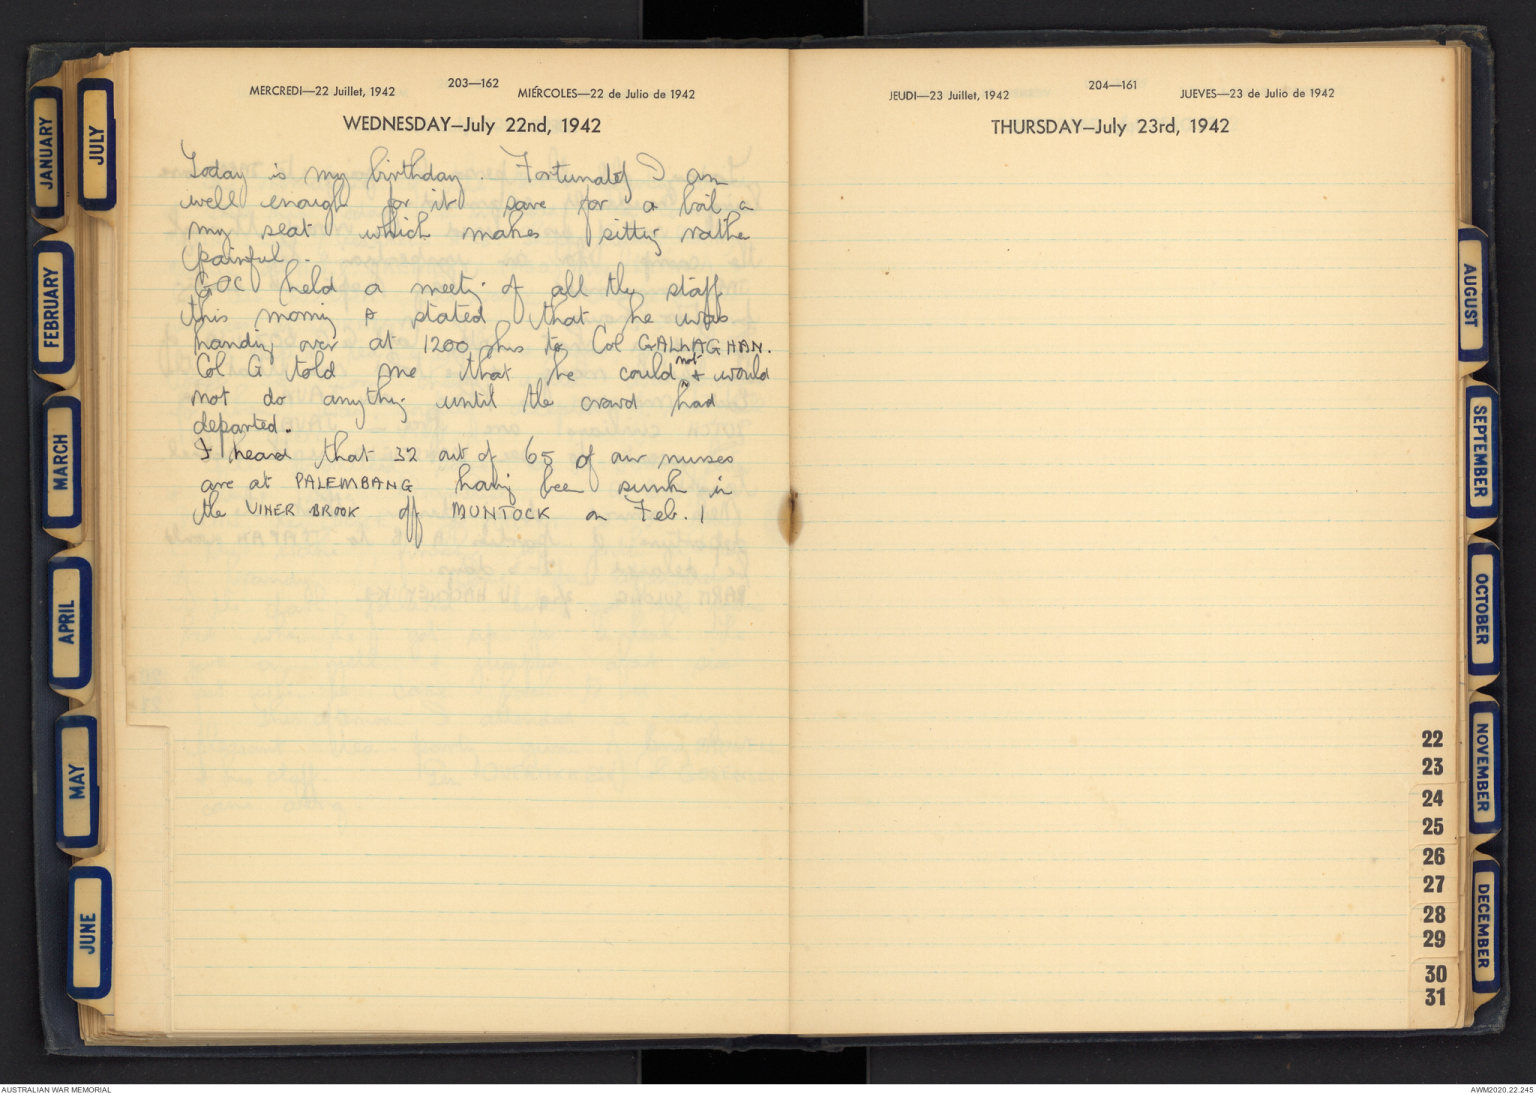 MERCREDI—22 Juillet, 1942
203—162
MIÉRCOLES—22 de Julio de 1942
WEDNESDAY—July 22nd, 1942
Today is my birthday. Fortunately I am
well enough for it save for a boil on
my seat which makes sitting rather
painful.
GOC held a meeting of all the staff
this morning & stated that he was
handing over at 1200 hrs to Col GALLAGHAN.
Col G told me that he could not & would
not do anything until the crowd had
departed.
I heard that 32 out of 65 of our nurses
are at PALEMBANG having been sunk in
the VINER BROOK off MUNTOCK on Feb. 1
JEUDI—23 Juillet, 1942
204—161
JUEVES—23 de Julio de 1942
THURSDAY—July 23rd, 1942
JANUARY
FEBRUARY
MARCH
APRIL
MAY
JUNE
JULY
AUGUST
SEPTEMBER
OCTOBER
NOVEMBER
DECEMBER
22
23
24
25
26
27
28
29
30
31
AUSTRALIAN WAR MEMORIAL
AWM2020.22.245